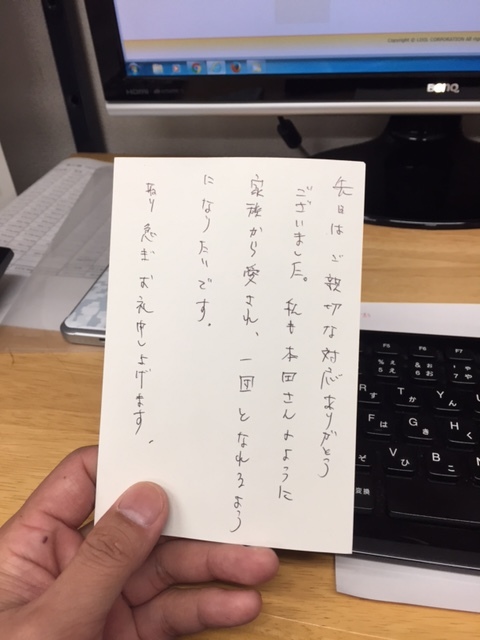 先日はご親切な対応ありがとう
ございました。私も本田さんのように
家族から愛され、一団となれるよう
になりたいです。
取り急ぎお礼申し上げます。
BenQ
HDMI
F5
F6
F7
%え
5え
&お
6お
'や
7や
R
す
T
か
Y
ん
F
は
G
き
H
く
V
ひ
B
こ
N
変換